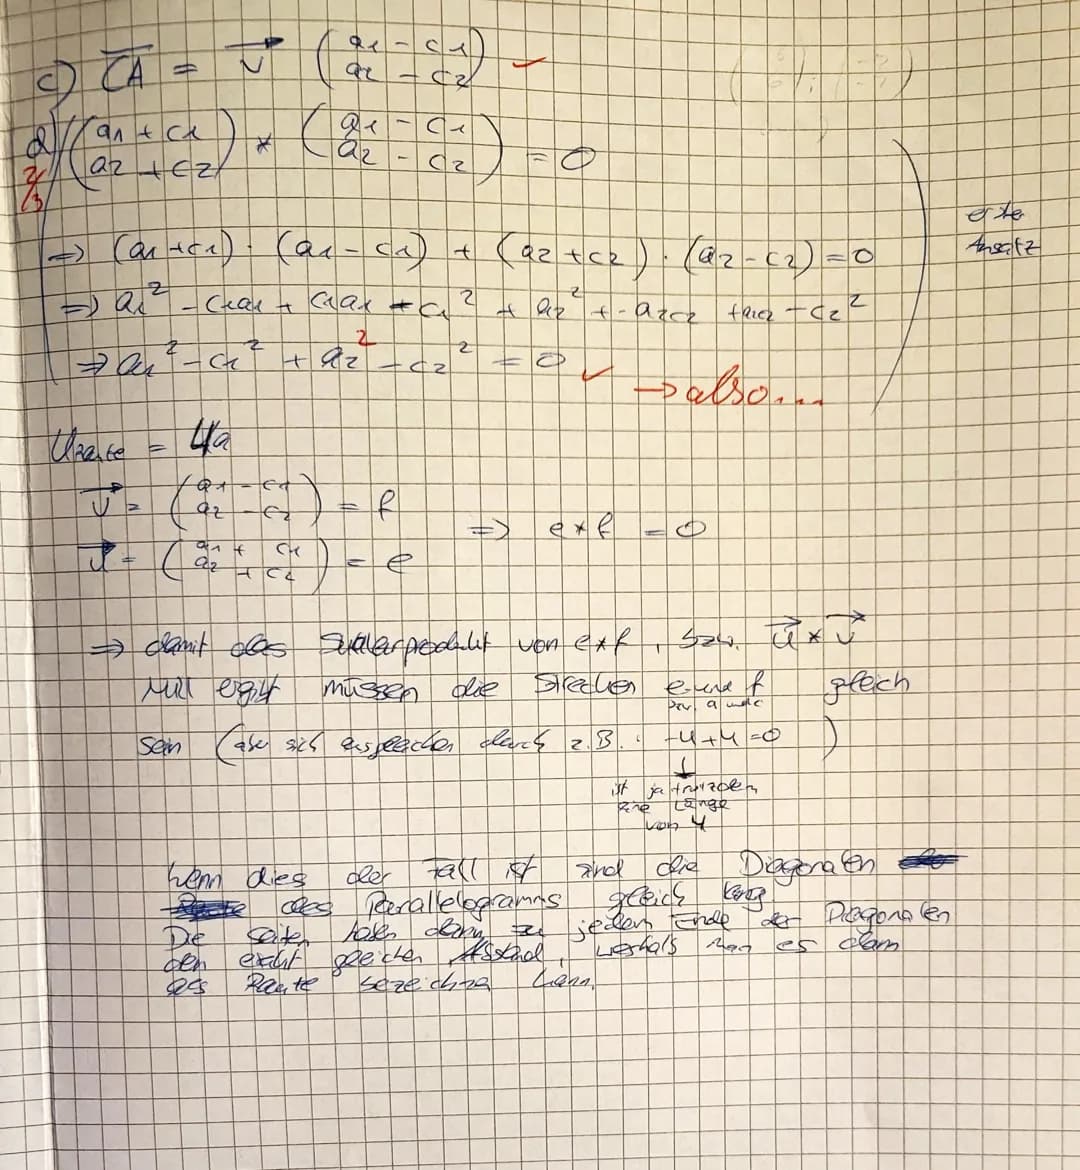 c) CA = v (a1 - c1
a2 - c2) ✓
d) (a1 + c1
a2 + c2) * (a1 - c1
a2 - c2) = 0
2/3
erster
Ansatz
=> (a1 + c1) · (a1 - c1) + (a2 + c2) · (a2 - c2) = 0
=> a1² - c1a1 + c1a1 - c1² + a2² + - a2c2 + a2c2 - c2²
=> a1² - c1² + a2² - c2² = 0 ✓
→ also...
URaute = 4a
v = (a1 - c1
a2 - c2) = f
=> e * f = 0
u = (a1 + c1
a2 + c2) = e
=> damit das Skalarprodukt von e*f, bzw. u * v
Null ergibt müssen die Strecken e und f gleich
bzw. a und c
sein (aber sich ausgleichen durch z.B. : -4+4=0)
↓
ist ja trotzdem
eine Länge
von 4
Wenn dies der Fall ist sind die Diagonalen
des Parallelogramms gleich lang
Die Seiten haben dann zu jedem Ende der Diagonalen
den exakt gleichen Abstand, weshalb man es dann
als Raute bezeichnen kann.